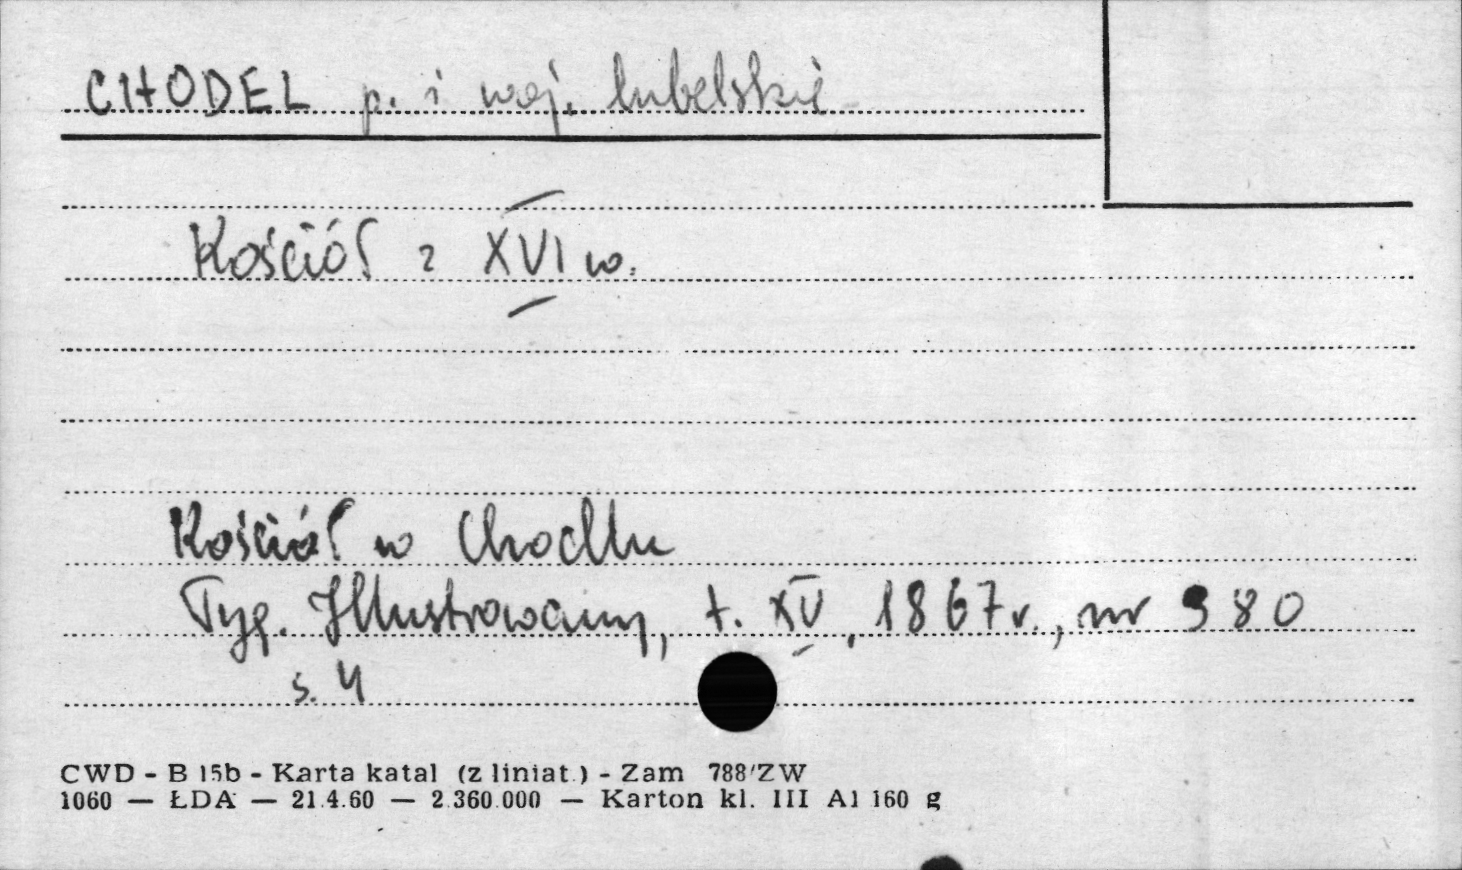 CHODEL p. i woj. lubelskie
Kościół z XVI w.
Kościół w Chodlu
Tyg. Illustrowany, t. XV, 1867 r., nr 380
s. 4
CWD - B 15b - Karta katal (z liniat.) - Zam 788/ZW
1060 — ŁDA — 21.4.60 — 2.360.000 — Karton kl. III A1 160 g